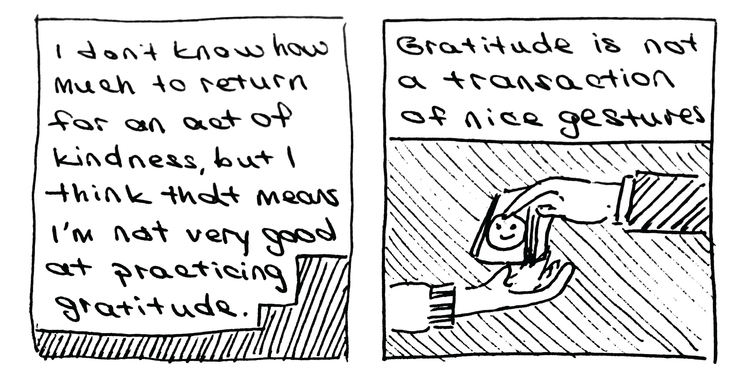 I don't know how
much to return
for an act of
kindness, but I
think that means
I'm not very good
at practicing
gratitude.
Gratitude is not
a transaction
of nice gestures